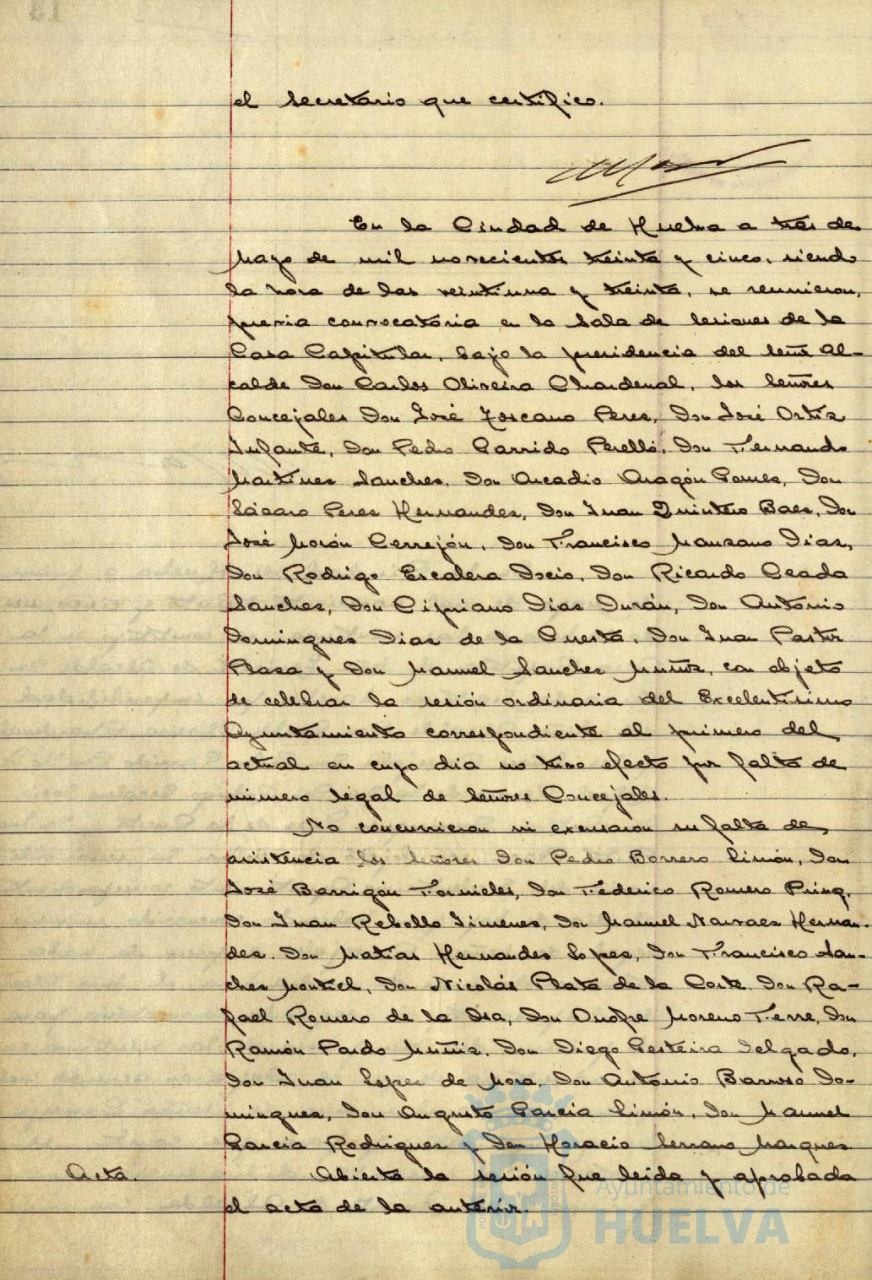 el Secretario que certifico.
En la Ciudad de Huelva a tres de
Mayo de mil novecientos treinta y cinco, siendo
la hora de las veintiuna y treinta, se reunieron,
previa convocatoria en la Sala de Sesiones de la
Casa Capitular, bajo la presidencia del Señor Al-
calde Don Carlos Oliveira Chardenal, los Señores
Concejales Don José Toscano Peres, Don José Ortiz
Infante, Don Pedro Garrido Perelló, Don Fernando
Martines Sanches, Don Arcadio Aragón Gomes, Don
Lásaro Peres Hernandes, Don Juan Quintero Baes, Don
José Morón Cerrejón, Don Francisco Mansano Dias,
Don Rodrigo Escalera Docio, Don Ricardo Ceada
Sanches, Don Cipriano Dias Durán, Don Antonio
Domingues Dias de la Cuesta, Don Juan Pastor
Plasa y Don Manuel Sanches Muñiz, con objeto
de celebrar la sesión ordinaria del Excelentísimo
Ayuntamiento correspondiente al primero del
actual en cuyo dia no tuvo efecto por falta de
número legal de Señores Concejales.
No concurrieron ni excusaron su falta de
asistencia los Señores Don Pedro Borrero Limón, Don
José Barrigón Fornieles, Don Federico Romero
Don Juan Rebollo Jimenes, Don Manuel Narvaes Hernan-
des, Don Matías Hernandes Lopes, Don Francisco San-
ches Montiel, Don Nicolás Plata de la Corte, Don Ra-
fael Romero de la Osa, Don Onofre Moreno Ferre, Don
Ramón Pardo Muñiz, Don Diego Delgado,
Don Juan Lopes de Mora, Don Antonio Barroso Do-
mingues, Don Augusto Garcia Limón, Don Manuel
Garcia Rodrigues y Don Horacio Serrano Marques.
Acta. Abierta la sesión fue leida y aprobada
el acta de la anterior.
Ayuntamiento de
HUELVA